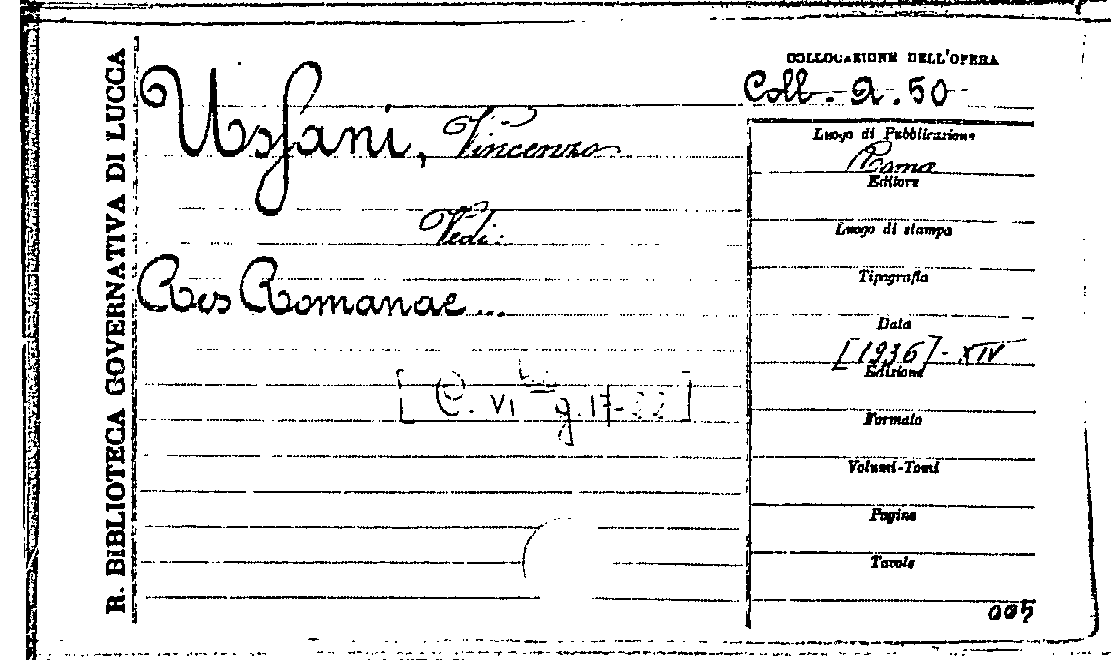 R. BIBLIOTECA GOVERNATIVA DI LUCCA
Ussani, Vincenzo
Vedi:
Res Romanae...
COLLOCAZIONE DELL'OPERA
Coll. a. 50
Luogo di Pubblicazione
Roma
Editore
Luogo di stampa
Tipografia
Data
[1936]-XIV
Edizione
Formato
Volumi-Tomi
Pagine
Tavole
005